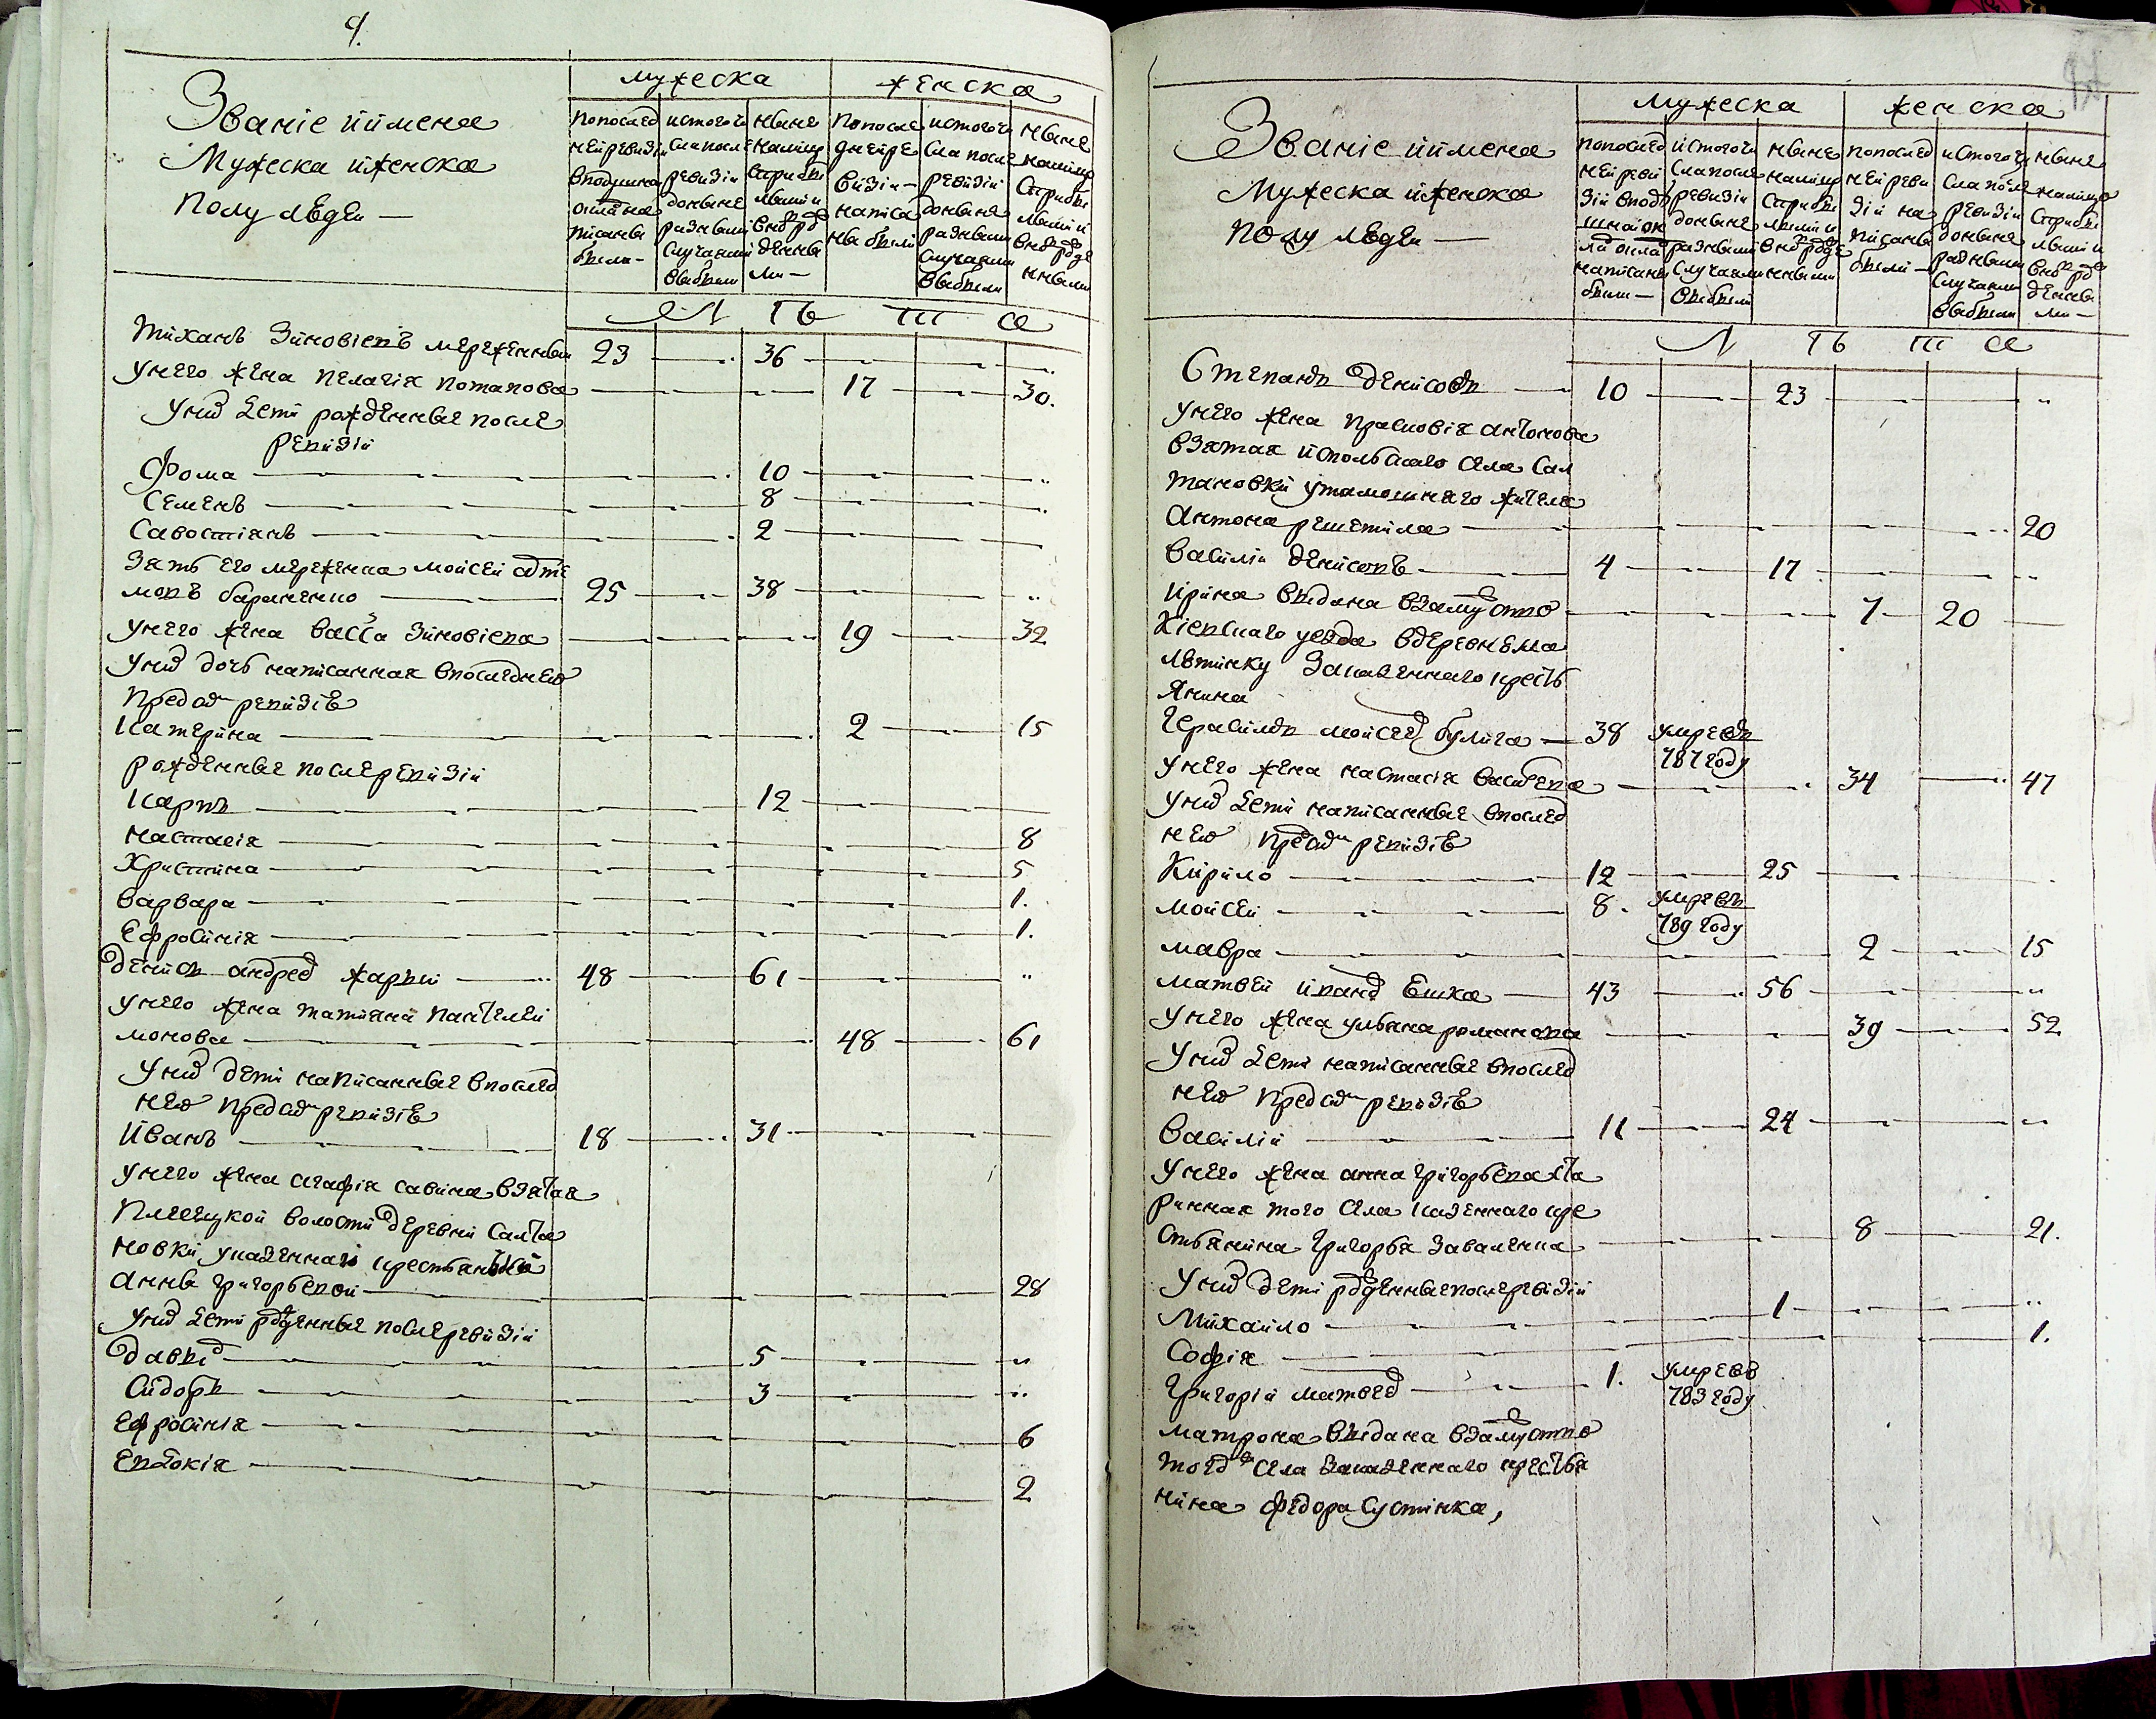 9.
Званіе и имена
Мужеска и женска
полу людей —
мужеска
женска
по послед
ней ревизіи
в подушно
написаны
были —
ис того чи
сла после
ревизіи
до ныне
разными
случаями
выбыли
ныне
налицо
с прибы
лыми и
по после
дней ре
визіи —
написа
ны были
ис того чи
сла после
ревизіи
до ныне
разными
случаями
выбыли
ныне
налицо
с прибы
лыми и
Л Ѣ Т А
Тиханъ Зиновіевъ мереженный 23 36
у него жена Пелагія Потапова 17 30.
у них дети рожденные после
ревизіи
Фома 10
Семенъ 8
Савостіянъ 2
Зять его мереженка Мойсей Арте
мовъ 25 38
у него жена Васса Зиновіева 19 32
у них дочь написанная в последнею
пред сим ревизіѣ
Катерина 2 15
рожденные после ревизіи
Карпъ 12
Настасія 8
Христина 5
Варвара 1.
Ефросинія 1.
Денис Андреев Жарый 48 61
у него жена Татияна Пантелей
монова 48 61
у них дети написанные в послед
нею пред сим ревизіѣ
Иванъ 18 31
у него жена Агафія Савина взятая
Плесецкой волости деревни Салта
новки у казенной крестьянки
Анны Григорьевой 28
у них дети рожденные после ревизіи
Давыд 5
Сидоръ 3
Ефросинія 6
Евдокія 2
Званіе и имена
Мужеска и женска
полу людей —
мужеска
женска
по послед
ней реви
зіи в под
написаны
были —
ис того чи
сла после
ревизіи
до ныне
разными
случаями
выбыли
ныне
налицо
с прибы
лыми и
по послед
ней реви
зіи на
писаны
были —
ис того чи
сла после
ревизіи
до ныне
разными
случаями
выбыли
ныне
налицо
с прибы
лыми и
Л Ѣ Т А
Степанъ Денисовъ 10 23
у него жена Прасковія Антонова
взятая и с польскаго села Сал
тановки у тамошняго жителя
Антона Решетила 20
Василій Денисовъ 4 17
Ирина выдана в замуство 7 20
Кіевскаго уезда в деревню Ма
лютинку за казеннаго кресть
янина
Герасимъ Мойсеев Булига 38 умре въ
787 году
у него жена Настасія Васильева 34 47
у них дети написанные в послед
нею пред сим ревизіѣ
Кирило 12 25
Мойсей 8. умре въ
789 году
Мавра 2 15
Матвей Иванов Ешка 43 56
у него жена Ульяна Романова 39 52
у них дети написанные в послед
нею пред сим ревизіѣ
Василій 11 24
у него жена Анна Григорьева ста
ринная того села казеннаго кре
стьянина Григорья Заваленка 8 21.
у них дети рожденные после ревизіи
Михайло 1
Софія 1.
Григорій Матвеев 1. умре въ
783 году
Матрона выдана в замуство
того ж села за казеннаго крестья
нина Федора Сустинка,